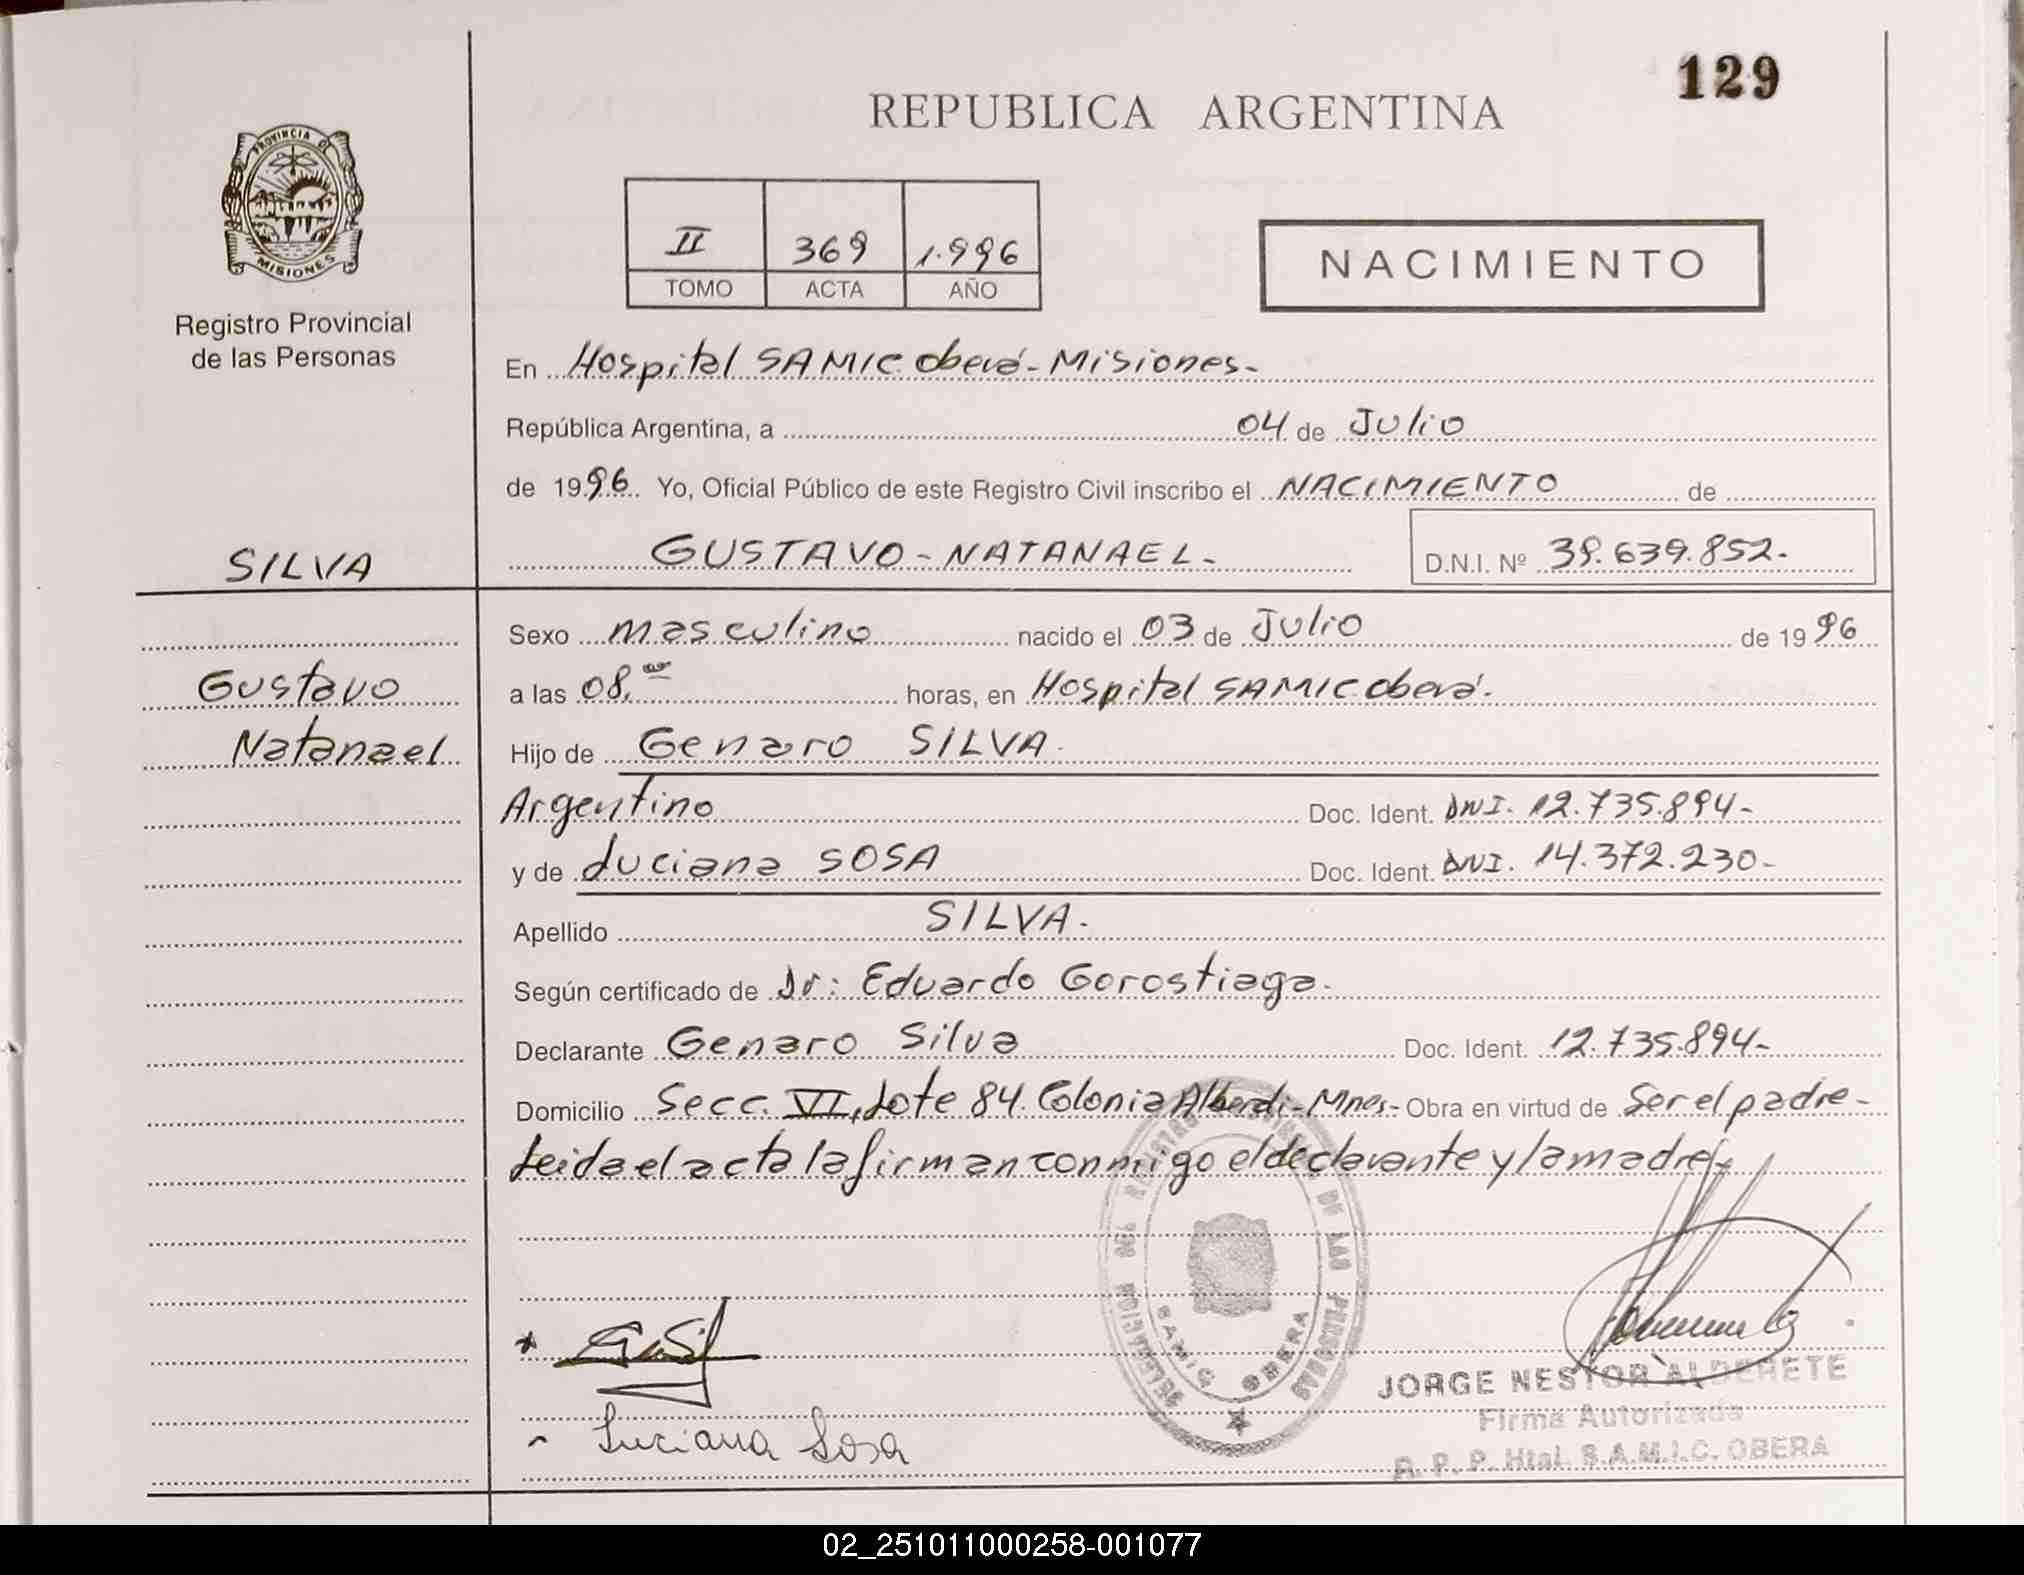 129
REPUBLICA ARGENTINA
PROVINCIA DE
MISIONES
Registro Provincial
de las Personas
II 369 1.996
TOMO ACTA AÑO
NACIMIENTO
En Hospital SAMIC Oberá - Misiones -
República Argentina, a 04 de Julio
de 1996 Yo, Oficial Público de este Registro Civil inscribo el NACIMIENTO de
SILVA
GUSTAVO - NATANAEL - D.N.I. Nº 39.639.852.-
Sexo masculino nacido el 03 de Julio de 1996
Gustavo
a las 08,00 horas, en Hospital SAMIC Oberá.
Natanael
Hijo de Genaro SILVA.
Argentino Doc. Ident. DNI. 12.735.894-
y de Luciana SOSA Doc. Ident. DNI. 14.372.230-
Apellido SILVA.
Según certificado de Dr: Eduardo Gorostiaga.
Declarante Genaro Silva Doc. Ident. 12.735.894-
Domicilio Secc. VI, Lote 84. Colonia Alberdi - Mnes- Obra en virtud de Ser el padre -
Leida el acta la firman conmigo el declarante y la madre -
DELEGACION DEL REGISTRO DE LAS PERSONAS
SAMIC OBERA
JORGE NESTOR ALDERETE
Firma Autorizada
R. P. P. Htal. S.A.M.I.C. OBERA
Luciana Sosa
02_251011000258-001077